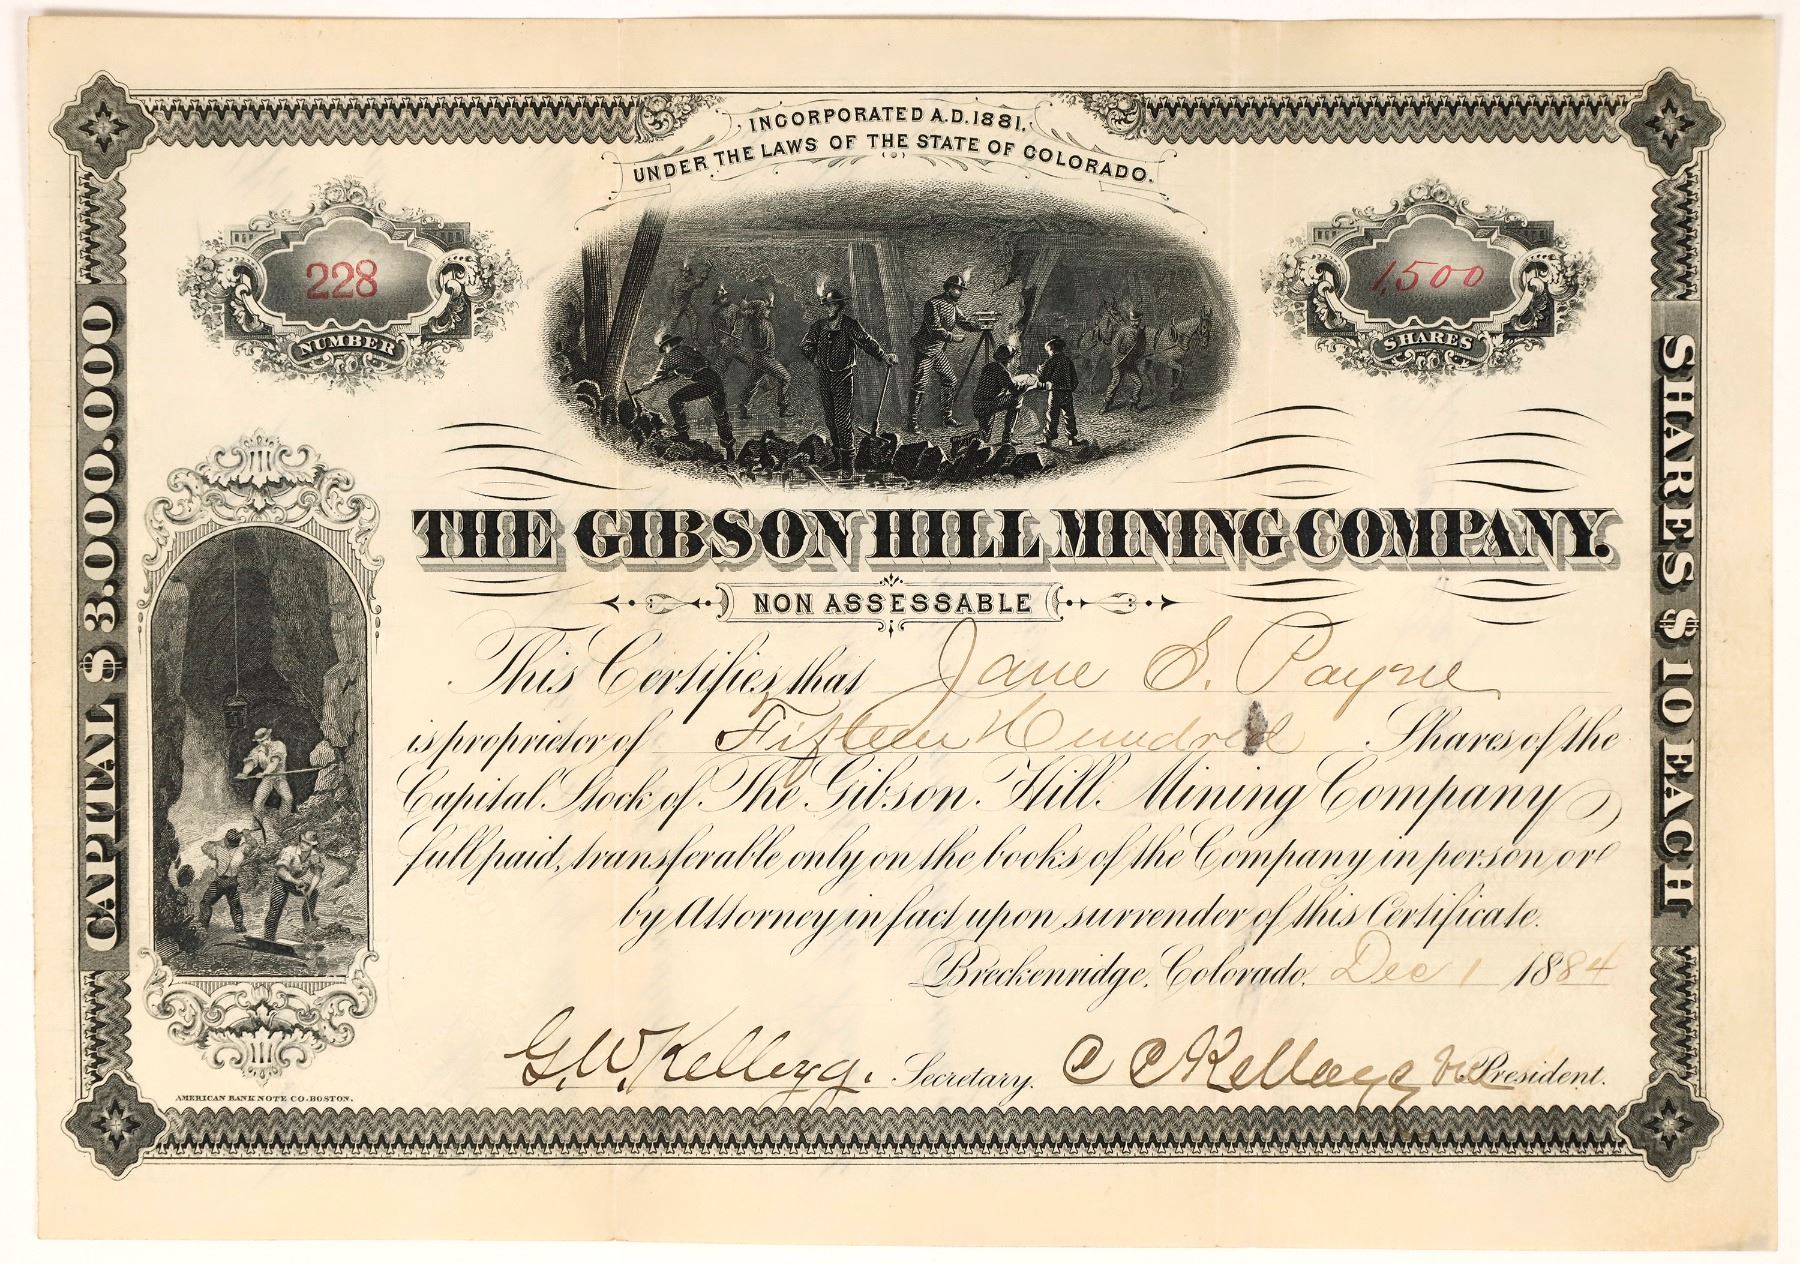 INCORPORATED A.D. 1881.
UNDER THE LAWS OF THE STATE OF COLORADO.
228
NUMBER
1,500
SHARES
CAPITAL $ 3.000.000
SHARES $ 10 EACH
THE GIBSON HILL MINING COMPANY.
NON ASSESSABLE
This Certifies that Jane S. Payne
is proprietor of Fifteen Hundred Shares of the
Capital Stock of The Gibson Hill Mining Company
full paid, transferable only on the books of the Company in person or
by Attorney in fact upon surrender of this Certificate.
Breckenridge, Colorado, Dec 1 1884
G. W. Kellogg. Secretary. C C Kellogg Vice President.
AMERICAN BANK NOTE CO. BOSTON.